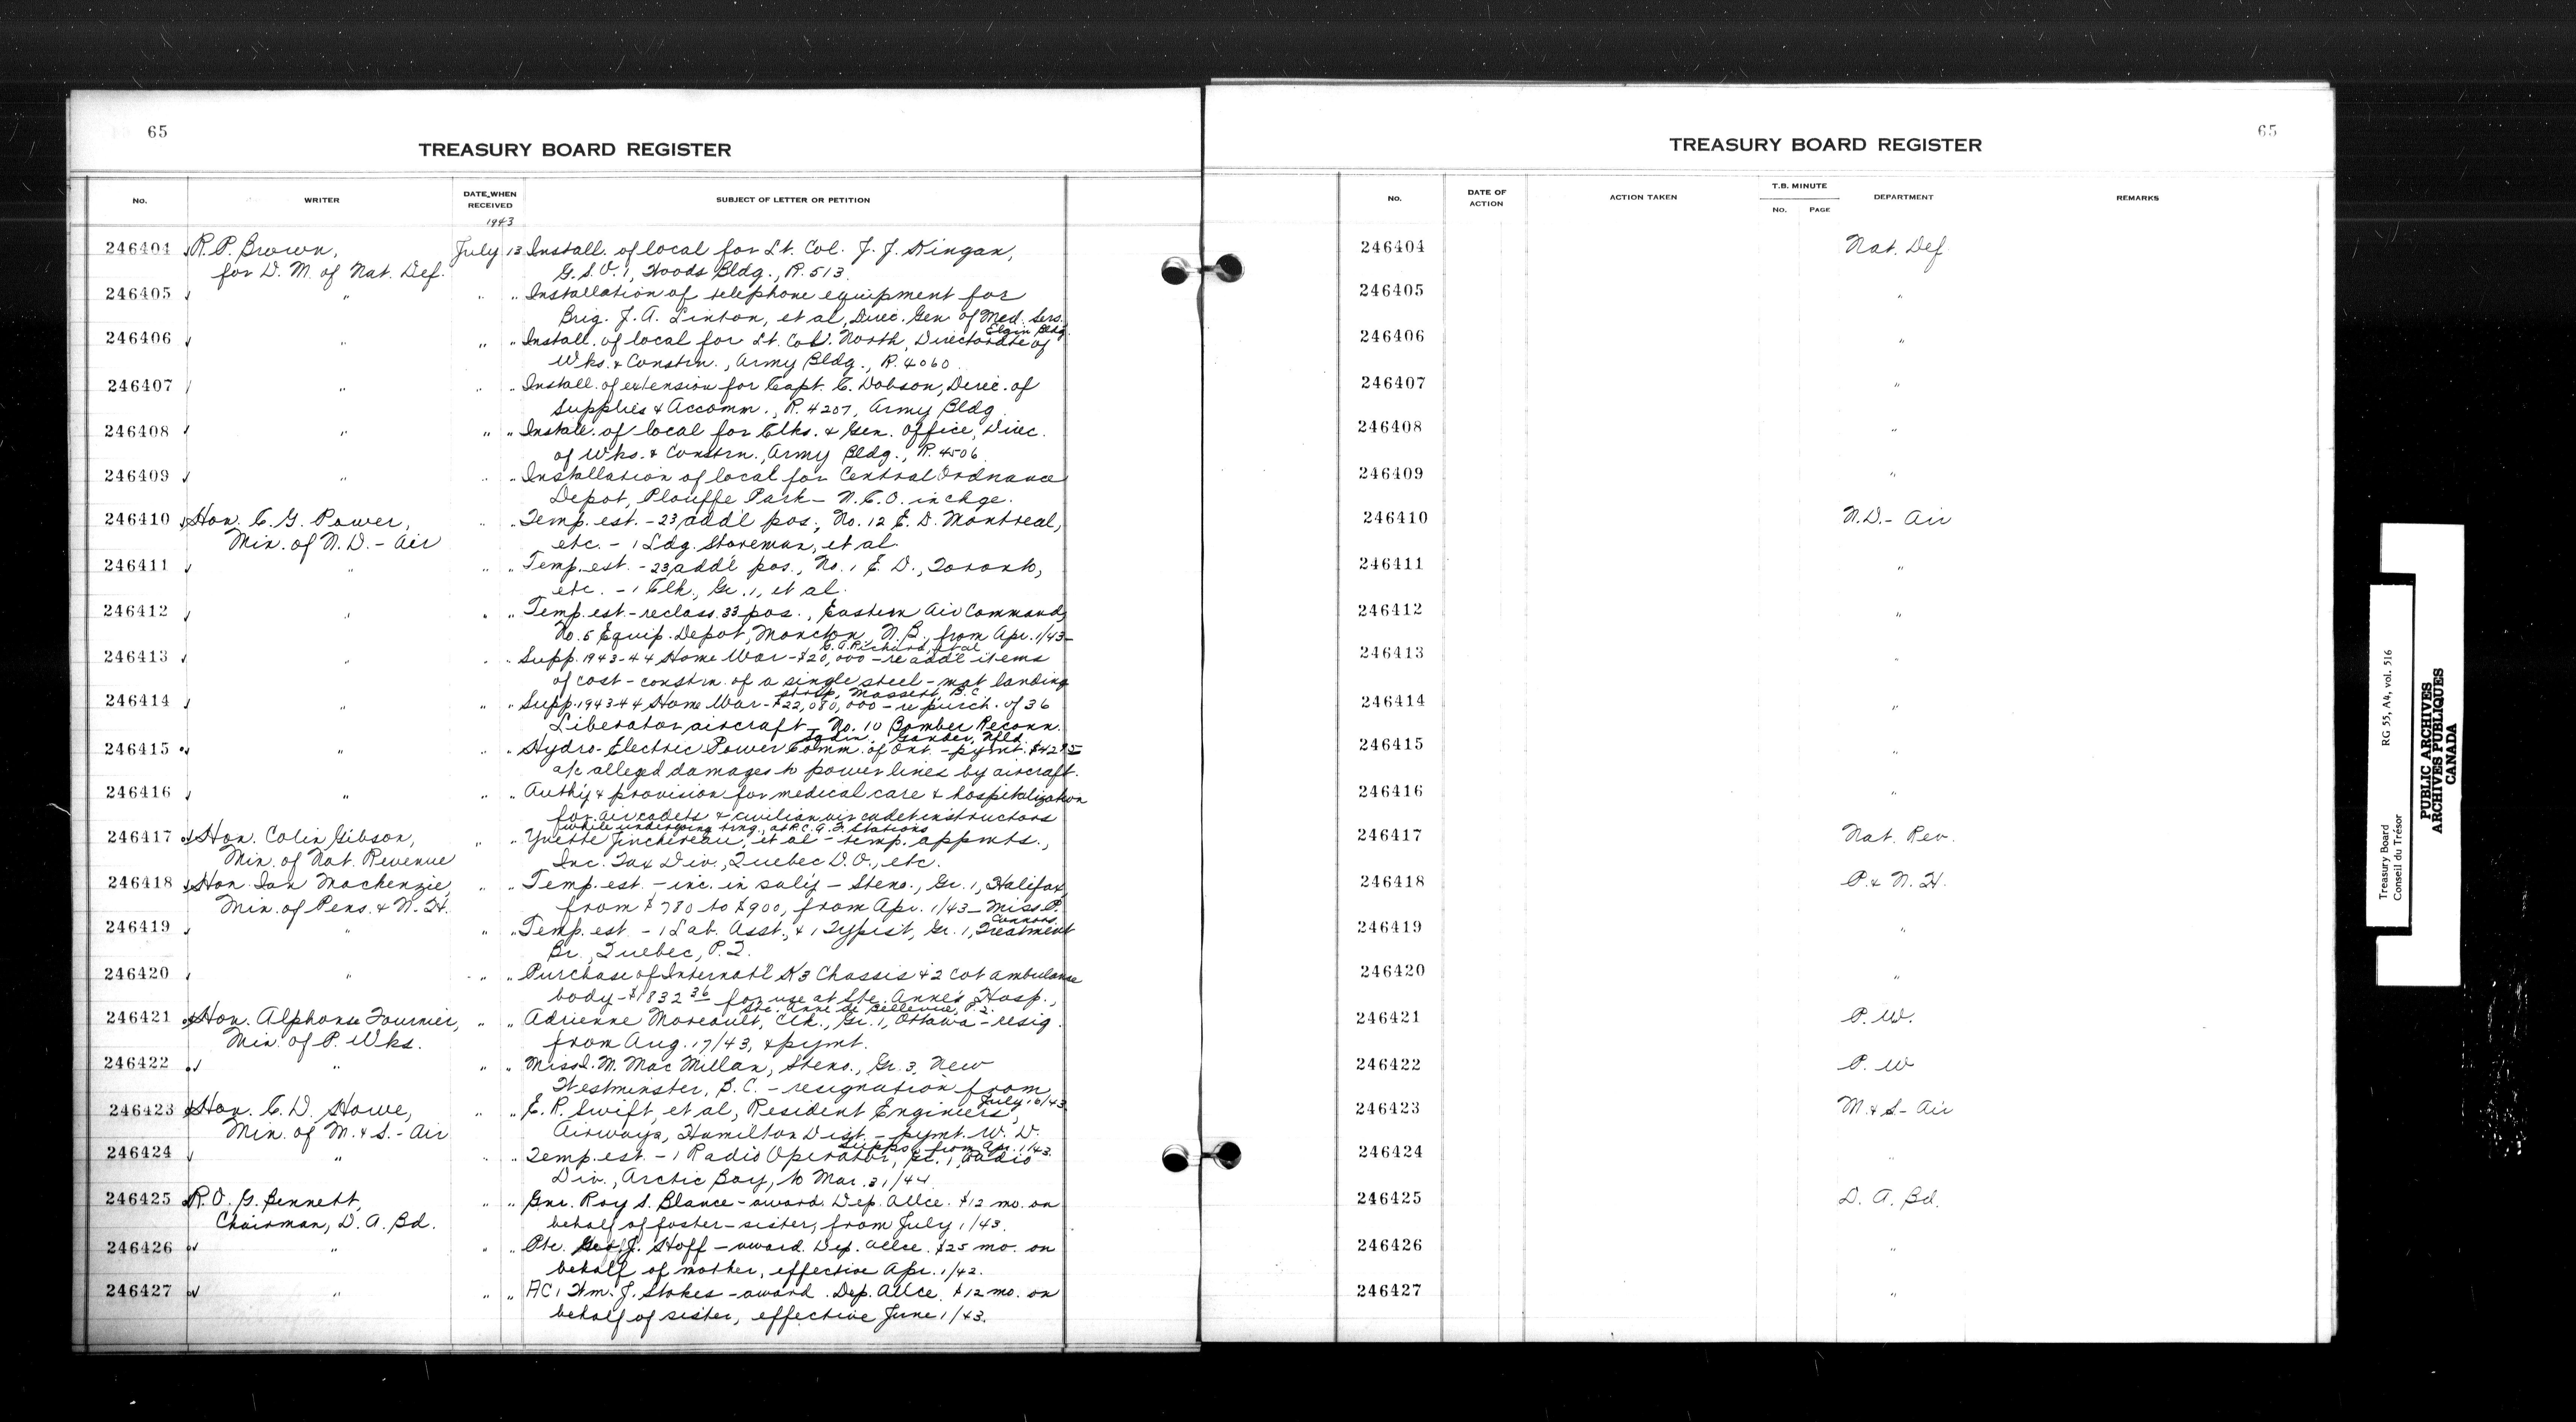 65
TREASURY BOARD REGISTER
No. WRITER DATE WHEN RECEIVED SUBJECT OF LETTER OR PETITION
1943
246404 R. P. Brown, July 13 Install. of local for Lt. Col. J. J. Kingan,
for D. M. of Nat. Def. G.S.O. 1, Woods Bldg., R. 513.
246405 " " " Installation of telephone equipment for
Brig. J. A. Linton, et al, Direc. Gen. of Med. Sers.
Elgin Bldg.
246406 " " " Install. of local for Lt. Col. North, Directorate of
Wks. & Constrn., Army Bldg., R. 4060.
246407 " " " Install. of extension for Capt. C. Dobson, Direc. of
Supplies & Accomm., R. 4207, Army Bldg.
246408 " " " Install. of local for Clks. & Gen. Office, Direc.
of Wks. & Constrn., Army Bldg., R. 4506.
246409 " " " Installation of local for Central Ordnance
Depot, Plouffe Park - N.C.O. in chge.
246410 Hon. C. G. Power, " " Temp. est. - 23 add'l pos., No. 12 E. D. Montreal,
Min. of N. D. - Air etc. - 1 Ldg. Storeman, et al.
246411 " " " Temp. est. - 23 add'l pos., No. 1 E. D., Toronto,
etc. - 1 Clk., Gr. 1, et al.
246412 " " " Temp. est. - reclass. 33 pos., Eastern Air Command,
No. 5 Equip. Depot, Moncton, N.B., from Apr. 1/43 -
G. A. Richard, et al
246413 " " " Supp. 1943-44 Home War - $20,000 - re add'l items
of cost - constrn. of a single steel-mat landing
strip, Massett, B.C.
246414 " " " Supp. 1943-44 Home War - $22,080,000 - re purch. of 36
Liberator aircraft - No. 10 Bomber Reconn.
Sqdn., Gander, Nfld.
246415 " " " Hydro-Electric Power Comm. of Ont. - pymt.
a/c alleged damages to power lines by aircraft.
246416 " " " Auth'y & provision for medical care & hospitalization
for air cadets & civilian air cadet instructors
while undergoing trng. at R.C.A.F. Stations
246417 Hon. Colin Gibson, " " Yvette Jinchereau, et al - temp. appmts.,
Min. of Nat. Revenue Inc. Tax Div., Quebec D.O., etc.
246418 Hon. Ian Mackenzie, " " Temp. est. - inc. in sal'y - Steno., Gr. 1, Halifax,
Min. of Pens. & N. H. from $780 to $900, from Apr. 1/43 - Miss P.
Connors.
246419 " " " Temp. est. - 1 Lab. Asst., & 1 Typist, Gr. 1, Treatment
Br., Quebec, P.Q.
246420 " " " Purchase of Internat'l K3 Chassis & 2 cot ambulance
body - $1832 36 for use at Ste. Anne's Hosp.,
Ste. Anne de Bellevue, P.Q.
246421 Hon. Alphonse Fournier, " " Adrienne Moreault, Clk., Gr. 1, Ottawa - resig.
Min. of P. Wks. from Aug. 17/43, & pymt.
246422 " " " Miss I. M. MacMillan, Steno., Gr. 3, New
Westminster, B.C. - resignation from
July 16/43
246423 Hon. C. D. Howe, " " E. R. Swift, et al, Resident Engineers,
Min. of M. & S. - Air Airways, Hamilton Dist. - pymt. W. D.
Supps., from Apr. 1/43.
246424 " " " Temp. est. - 1 Radio Operator, Gr. 1, Radio
Div., Arctic Bay, to Mar. 31/44.
246425 R. O. G. Bennett, " " Gnr. Roy S. Blance - award. Dep. Allce. $12 mo. on
Chairman, D. A. Bd. behalf of foster-sister, from July 1/43.
246426 " " " Pte. Geo. J. Hoff - award. Dep. Allce. $25 mo. on
behalf of mother, effective Apr. 1/42.
246427 " " " AC1 Wm. J. Stokes - award. Dep. Allce. $12 mo. on
behalf of sister, effective June 1/43.
65
TREASURY BOARD REGISTER
No. DATE OF ACTION ACTION TAKEN T.B. MINUTE No. PAGE DEPARTMENT REMARKS
246404 Nat. Def.
246405 "
246406 "
246407 "
246408 "
246409 "
246410 N.D. - Air
246411 "
246412 "
246413 "
246414 "
246415 "
246416 "
246417 Nat. Rev.
246418 P. & N. H.
246419 "
246420 "
246421 P. W.
246422 P. W
246423 M. & S. - Air
246424 "
246425 D. A. Bd.
246426 "
246427 "
Treasury Board RG 55, A4, vol. 516
Conseil du Trésor
PUBLIC ARCHIVES
ARCHIVES PUBLIQUES
CANADA